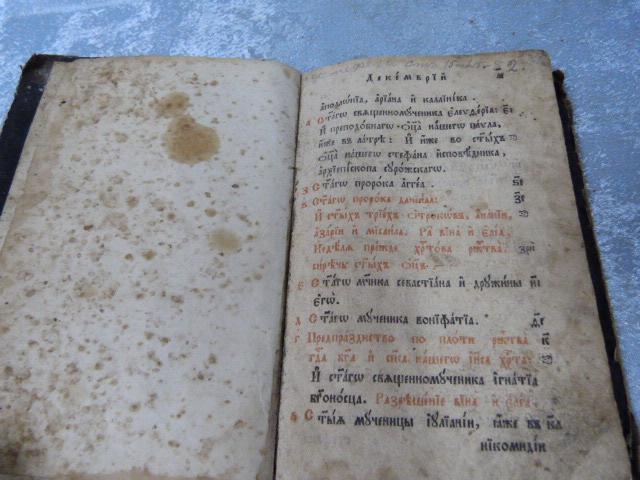 Деке́мврїй
аполлѡнїа, арїана и каллиніка.
Ст҃агѡ свѧщенномученика Елеѵѳерїа: еі
И преподобнагѡ ѻц҃а нашегѡ паѵла,
иже въ латрѣ: И иже во ст҃ыхъ
ѻц҃а нашегѡ стефана исповѣдника,
архїепископа сурожскагѡ.
Ст҃агѡ пророка аггеа.
Ст҃агѡ пророка данїила:
И ст҃ыхъ трїехъ ѻтрокѡвъ, ананїи,
азарїи и мисаила. Ра вїна и елеа,
Недѣлѧ прежде хр҃това рж҃тва.
сирѣчь ст҃ыхъ ѻц҃ъ.
Ст҃агѡ мч҃ника севастїана и дружины иі
єгѡ.
Ст҃агѡ мученика вонифатїа.
Предпразднство по плоти рж҃тва к
гд҃а бг҃а и сп҃са нашегѡ іи҃са хр҃та:
И ст҃агѡ свѧщенномученика игнатїа
бг҃оносца. Разрѣшенїе вїна и елеа.
Ст҃ыѧ мученицы іулїанїи, ꙗже въ ка
никомидїи